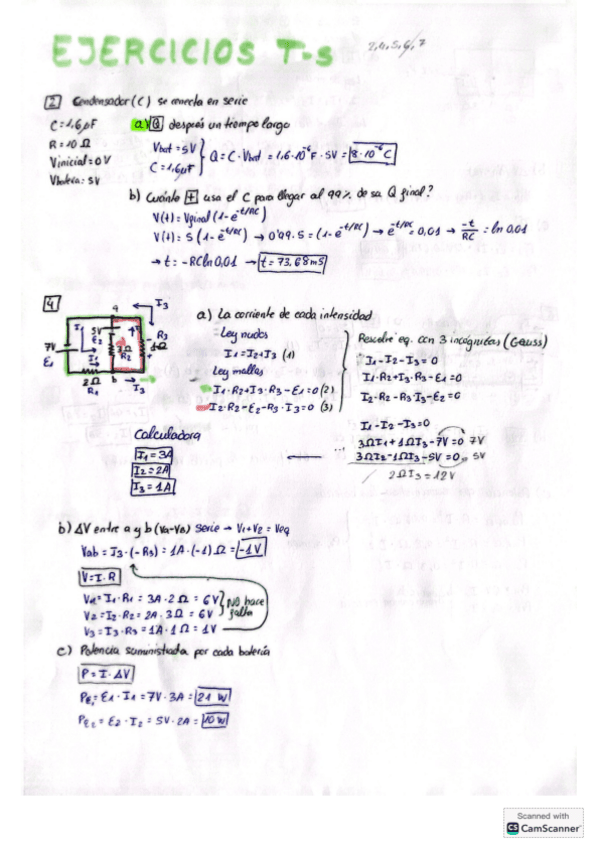 EJERCICIOS T-5
2,4,5,6,7
2 Condensador (C) se conecta en serie
C = 1,6 µF
R = 10 Ω
Vinicial = 0 V
Vbatería = 5V
a) Q después un tiempo largo
Vbat = 5V
C = 1,6 µF
Q = C · Vbat = 1,6·10⁻⁶ F · 5V = 8·10⁻⁶ C
b) Cuánto t usa el C para llegar al 99% de su Q final?
V(t) = Vfinal (1-e^-t/RC)
V(t) = 5 (1-e^-t/RC) → 0'99·5 = (1-e^-t/RC) → e^-t/RC = 0,01 → -t/RC = ln 0,01
→ t = -RC ln 0,01 → t = 73,68 ms
4
a I3
7V E1 I1 5V E2 3Ω R2 R3 1Ω
2Ω R1 b I3
a) La corriente de cada intensidad
Ley nudos
I1 = I2 + I3 (1)
Ley mallas
I1·R2 + I3·R3 - E1 = 0 (2)
I2·R2 - E2 - R3·I3 = 0 (3)
Resolver eq. con 3 incógnitas (Gauss)
I1 - I2 - I3 = 0
I1·R2 + I3·R3 - E1 = 0
I2·R2 - R3 I3 - E2 = 0
I1 - I2 - I3 = 0
3Ω I1 + 1Ω I3 - 7V = 0 7V
3Ω I3 - 1Ω I3 - 5V = 0 5V
2Ω I3 = 12V
Calculadora
I1 = 3A
I2 = 2A
I3 = 1A
b) ΔV entre a y b (Va-Vb) serie → V1+V2 = Veq
Vab = I3·(-R3) = 1A·(-1) Ω = -1V
V = I·R
V1 = I1·R1 = 3A·2Ω = 6V
V2 = I2·R2 = 2A·3Ω = 6V
V3 = I3·R3 = 1A·1Ω = 1V
No hace falta
c) Potencia suministrada por cada batería
P = I·ΔV
PE1 = E1·I1 = 7V·3A = 21 W
PE2 = E2·I2 = 5V·2A = 10 W
Scanned with
CS CamScanner